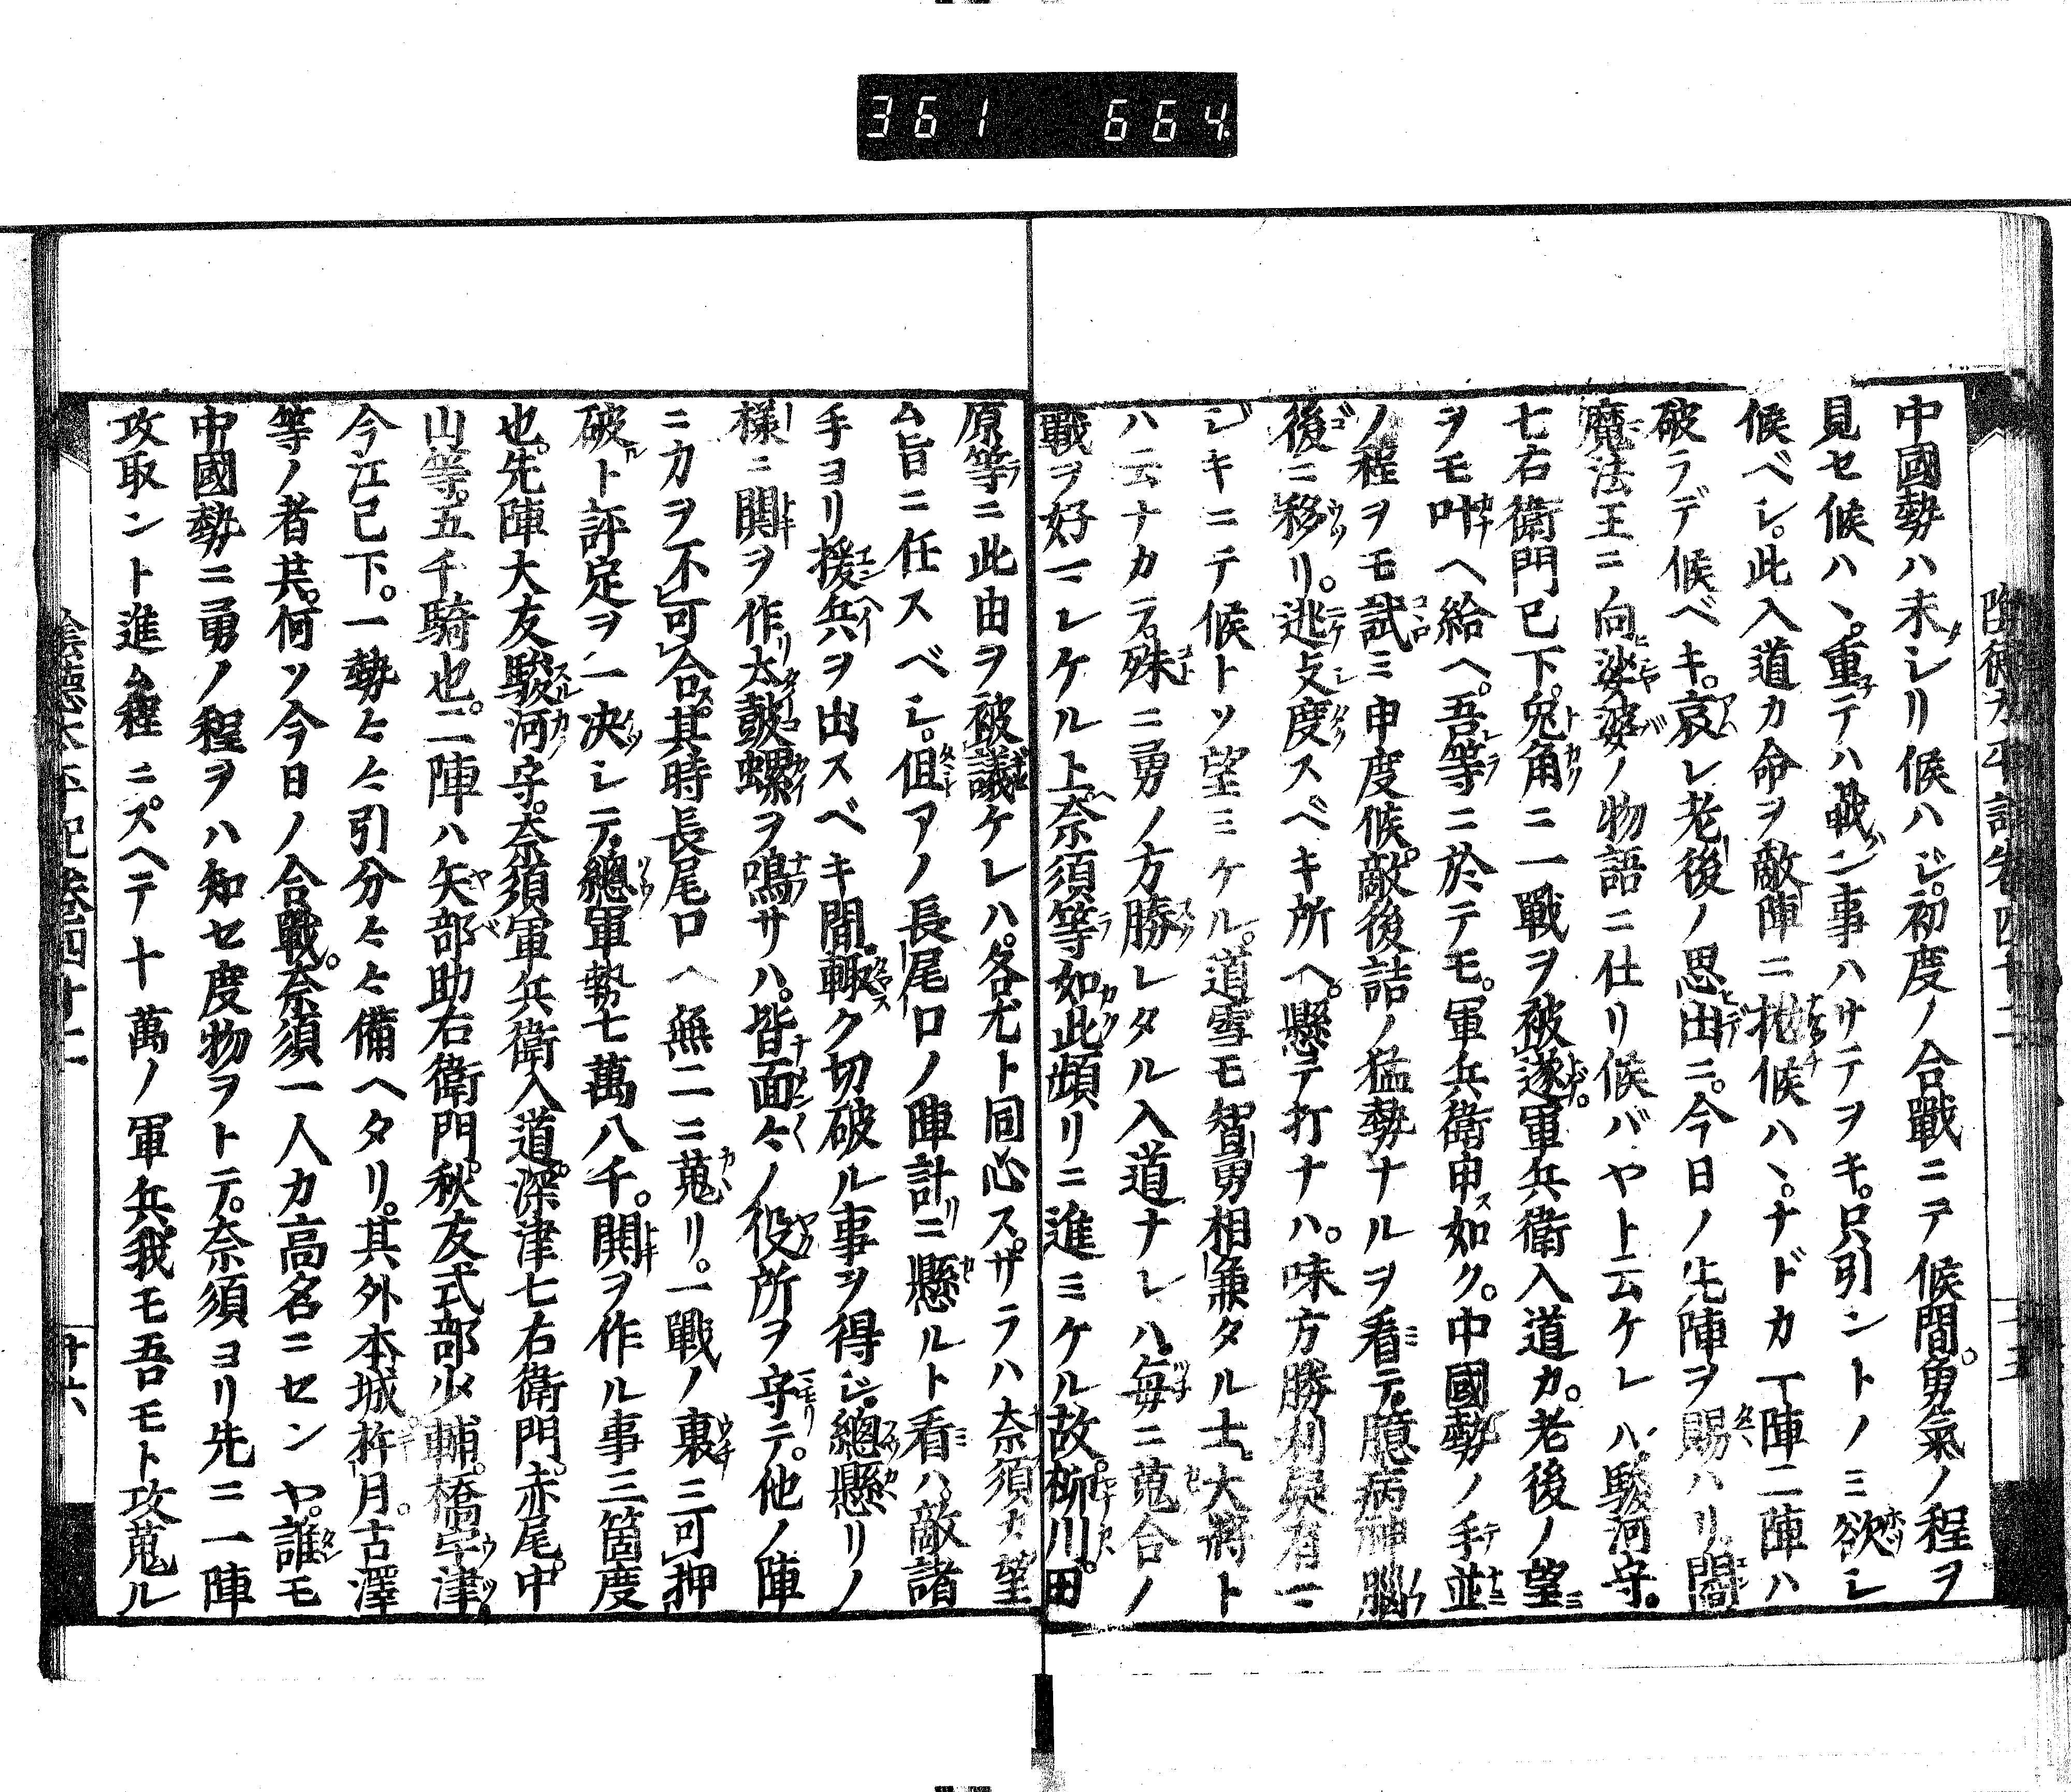 361 664
中國勢ハ未シリ候ハジ。初度ノ合戰ニテ候間。勇氣ノ程ヲ
見セ候ハヽ。重テハ戰ン事ハサテヲキ。只引ントノミ欲シ
候ベシ。此入道カ命ヲ敵陣ニ抛候ハヽ。ナドカ一陣二陣ハ
破ラデ候ベキ。哀レ老後ノ思出ニ。今日ノ先陣ヲ賜ハリ。閻
魔法王ニ向娑婆ノ物語ニ仕リ候バヤト云ケレハ。駿河守。
七右衛門已下。兎角ニ一戰ヲ被遂。軍兵衛入道カ。老後ノ望
ヲモ叶ヘ給ヘ。吾等ニ於テモ。軍兵衛申如ク。中國勢ノ手並
ノ程ヲモ試ミ申度候。敵後詰ノ猛勢ナルヲ看テ。臆病神腦
後ニ移リ。逃支度スベキ所ヘ。懸テ打ナハ。味方勝利
ジキニテ候トソ望ミケル。道雪モ智勇相兼タル士。大將ト
ハ云ナカラ。殊ニ勇ノ方勝レタル入道ナレハ。毎ニ蒐合ノ
戰ヲ好マレケル上。奈須等如此頻リニ進ミケル故。柳川。田
原等ニ此由ヲ被議ケレハ。各尤ト同心ス。サラハ奈須カ望
ム旨ニ任スベシ。但アノ長尾口ノ陣計ニ懸ルト看ハ。敵諸
手ヨリ援兵ヲ出スベキ間。輙ク切破ル事ヲ得ジ。總懸リノ
樣ニ鬨ヲ作リ太鼓螺ヲ鳴サハ。皆面々ノ役所ヲ守テ。他ノ陣
ニ力ヲ不可合。其時長尾口ヘ無二ニ蒐リ。一戰ノ裏ニ可押
破ト評定ヲ一决シテ。總軍勢七萬八千。鬨ヲ作ル事三箇度
也。先陣大友駿河守。奈須軍兵衛入道。深津七右衛門。赤尾。中
山等。五千騎也。二陣ハ矢部助右衛門。秋友式部少輔。橋
今江已下。一勢々々引分々々備ヘタリ。其外本城杵月。古澤
等ノ者共。何ソ今日ノ合戰。奈須一人カ高名ニセンヤ。誰モ
中國勢ニ勇ノ程ヲハ知セ度物ヲトテ。奈須ヨリ先ニ一陣
攻取ント進ム程ニ。スヘテ十萬ノ軍兵。我モ吾モト攻蒐ル